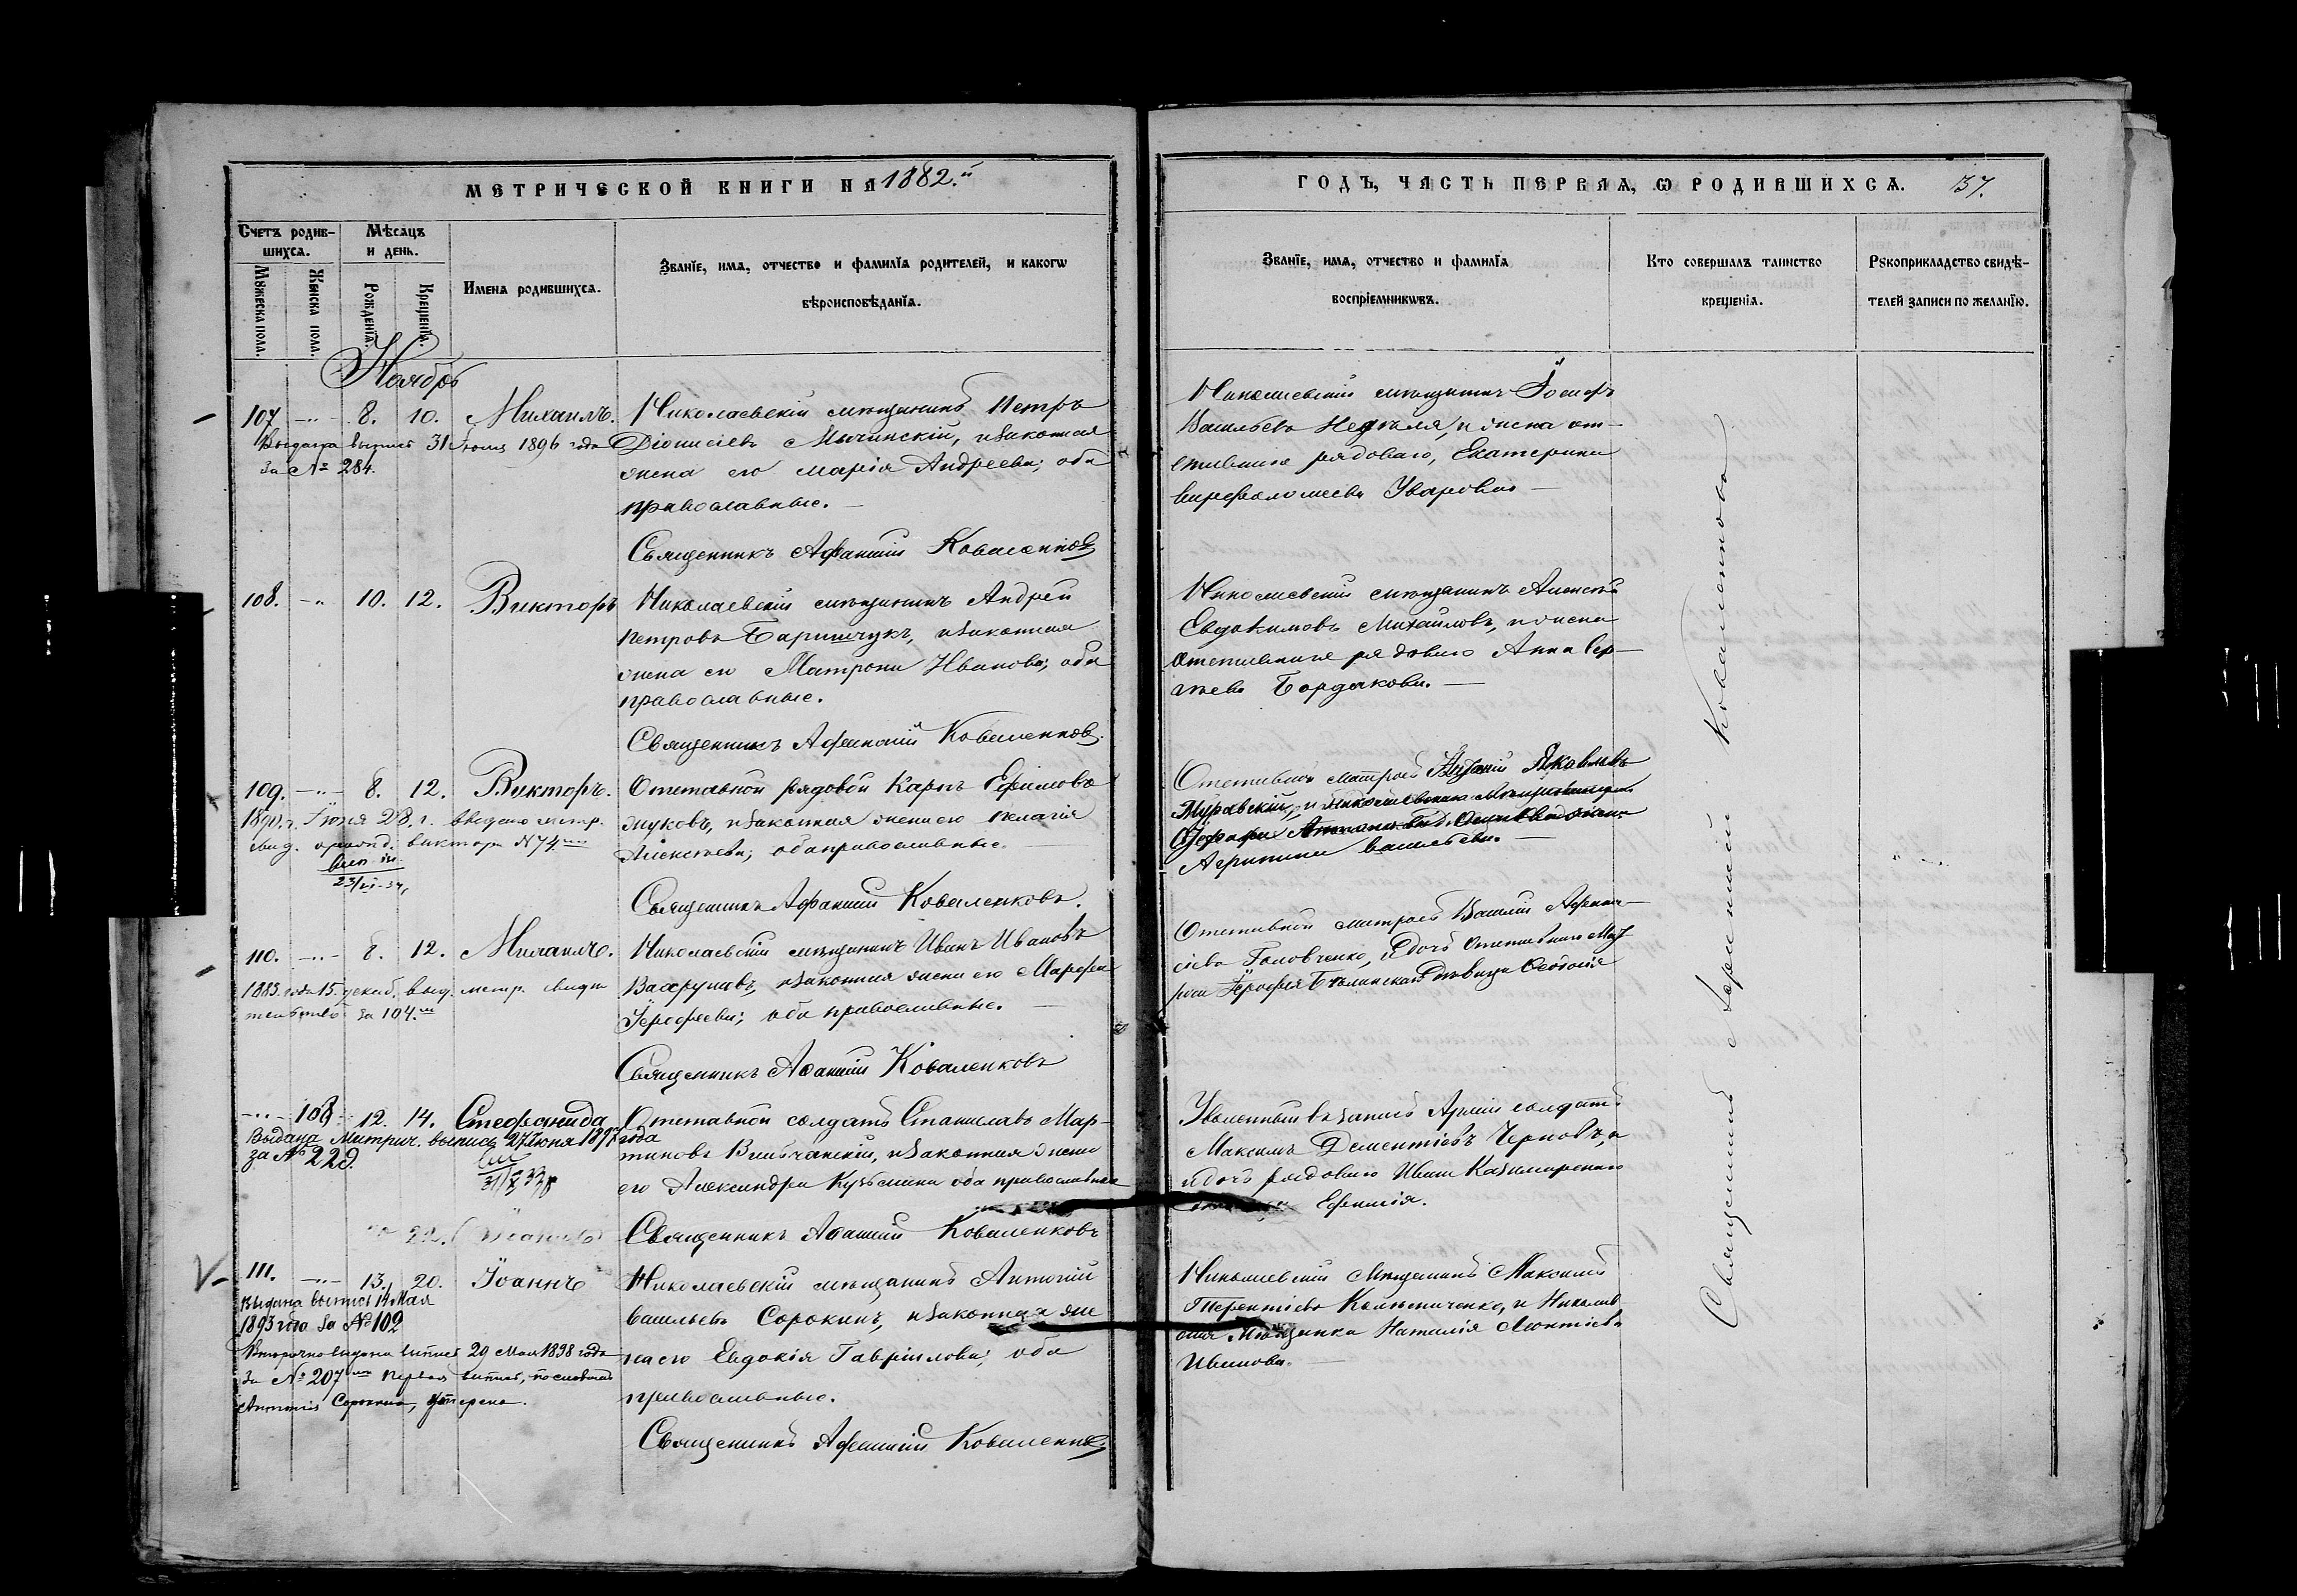 МЕТРИЧЕСКОЙ КНИГИ НА 1882.й
ГОДЪ, ЧАСТЬ ПЕРВАѦ, Ѡ РОДИВШИХСѦ. 137.
Счетъ родив-
шихсѧ.
Мѣсѧцъ
и день.
Мꙋжеска пола.
Женска пола.
Рожденїѧ.
Крещенїѧ.
Имена родившихсѧ.
Званїе, имѧ, отчество и фамилїѧ родителей, и какогѡ
вѣроисповѣданїѧ.
Званїе, имѧ, отчество и фамилїѧ
воспрїемникѡвъ.
Кто совершалъ таинство
крещенїѧ.
Рꙋкоприкладство свидѣ-
телей записи по желанїю.
Ноябрь
107. -"- 8. 10. Михаилъ.
Выдана выпись 31 Іюля 1896 года
За № 284.
Николаевскій мѣщанинъ Петръ
Діонисіевъ Мычинскій, и законная
жена его Марія Андреева; оба
православные. —
Священникъ Афанасій Коваленковъ
Николаевскій мѣщанинъ Іосифъ
Васильевъ Недѣля, и жена от-
ставного рядоваго, Екатерина
Варфоломеева Уварова —
108. -" 10. 12. Викторъ
Николаевскій мѣщанинъ Андрей
Петровъ Баришчукъ, и законная
жена его Матрона Иванова; оба
православные.
Священникъ Афанасій Коваленковъ.
Николаевскій мѣщанинъ Алексѣй
Евдокимовъ Михайловъ, и жена
отставного рядоваго Анна Сер-
гѣева Бордакова. —
109. -"- 8. 12. Викторъ.
1890 г. Іюня 28. г. выдано метр.
свид. Виктора N 74
Отставной рядовой Карпъ Ефимовъ
Жуковъ, и законная жена его Пелагія
Алексѣева; оба православные.
Священникъ Афанасій Коваленковъ.
Отставной матросъ Яковлевъ
Муравскій, и
Агрипина Васильева. —
110. -"- 8. 12. Михаилъ.
1883. года 15. декаб. выд. метр. свидѣ
тельство за 104.
Николаевскій мѣщанинъ Иванъ Ивановъ
Вахрушевъ, и законная жена его Марфа
Іерофеева; оба православные. —
Священникъ Афанасій Коваленковъ
Отставной матросъ Василій Афана-
сіевъ Головченко, и дочь отставного мат-
роса Іерофея Бѣлинскаго Дѣвица Феодосія
-"- 108 12. 14. Стефанида
Выдана Метрич. выпись 27 Іюня 1897 года
за № 229.
Отставной солдатъ Станиславъ Мар-
тиновъ Вильчанскій, и законная жена
его Александра Кузьмина оба православные
Священникъ Афанасій Коваленковъ
Уволенный въ запасъ Арміи солдатъ
Максимъ Дементіевъ Черновъ,
и дочь рядоваго Ивана Казимирскаго
Ефимія.
111. -"- 13. 20. Іоаннъ
Выдана выпись 14 Мая
1893 года за № 102
Вторично выдана выпись 29 Мая 1898 года
За № 207 первая выпись, по словамъ
Антонія Сорокина, утеряна.
Николаевскій мѣщанинъ Антоній
Васильевъ Сорокинъ, и законная же
на его Евдокія Гавріилова; оба
православные.
Священникъ Афанасій Коваленковъ
Николаевскій Мѣщанинъ
Терентіевъ и Николаев
ская Мѣщанка Наталія Леонтіева
Иванова. —
Священникъ Афанасій Коваленковъ